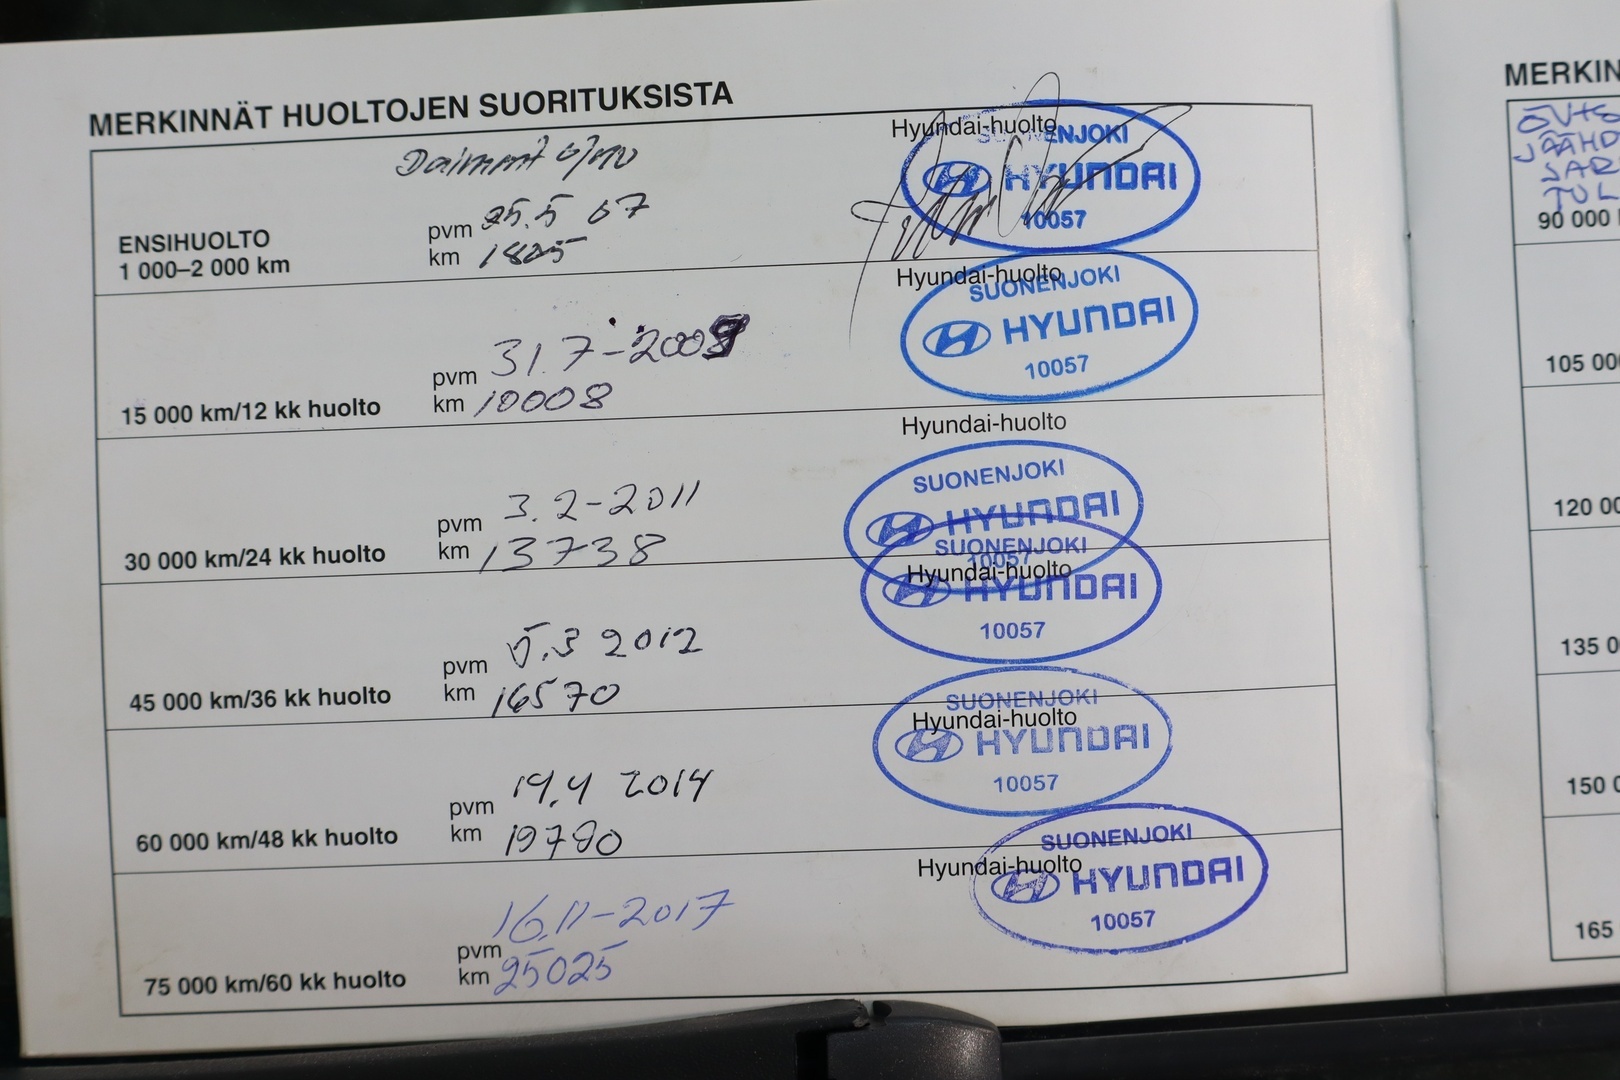 MERKINNÄT HUOLTOJEN SUORITUKSISTA
Hyundai-huolto
SUONENJOKI
HYUNDAI
10057
pvm 25.5 07
ENSIHUOLTO
1 000–2 000 km
km 1825
Hyundai-huolto
SUONENJOKI
HYUNDAI
10057
pvm 31.7-2009
15 000 km/12 kk huolto
km 10008
Hyundai-huolto
SUONENJOKI
HYUNDAI
10057
pvm 3.2-2011
30 000 km/24 kk huolto
km 13738
Hyundai-huolto
SUONENJOKI
HYUNDAI
10057
pvm 5.3 2012
45 000 km/36 kk huolto
km 16570
Hyundai-huolto
SUONENJOKI
HYUNDAI
10057
pvm 14.4 2014
60 000 km/48 kk huolto
km 19780
Hyundai-huolto
SUONENJOKI
HYUNDAI
10057
pvm 16.11-2017
75 000 km/60 kk huolto
km 25025
MERKIN
90 000
105 00
120 00
135 0
150 0
165